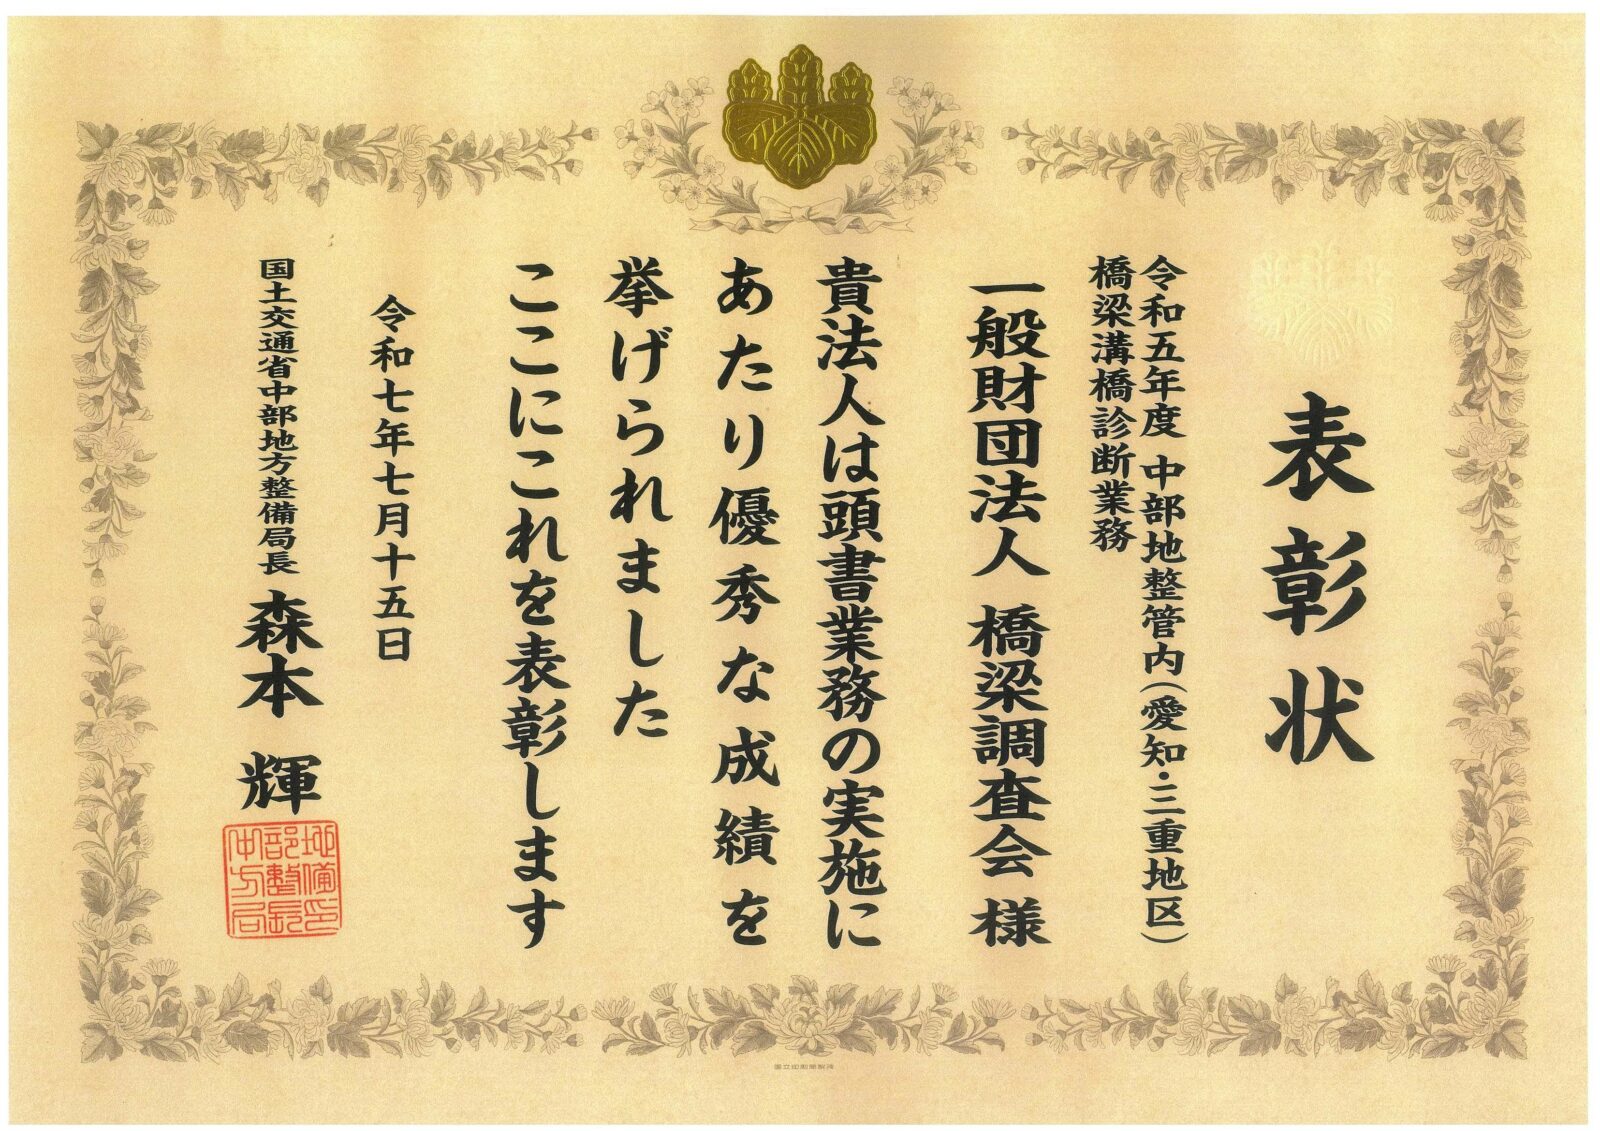 表彰状
令和五年度 中部地整管内(愛知・三重地区)
橋梁溝橋診断業務
一般財団法人 橋梁調査会 様
貴法人は頭書業務の実施に
あたり優秀な成績を
挙げられました
ここにこれを表彰します
令和七年七月十五日
国土交通省中部地方整備局長 森本 輝
地備印
部整長
中方局
国立印刷局製造